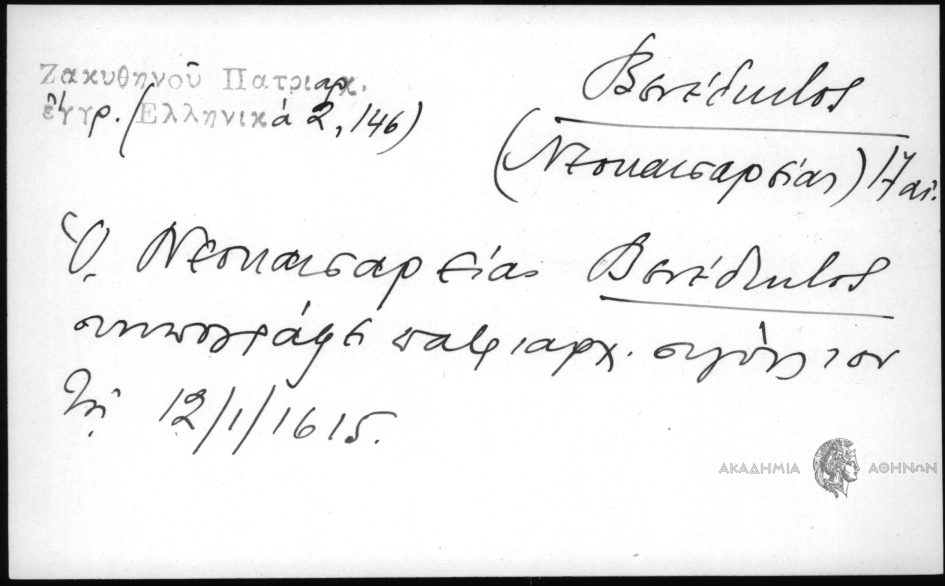 Ζακυθηνοῦ Πατριαρχ.
ἔγγρ. (Ἑλληνικά 2, 146)
Βενέδικτος
(Νεοκαισαρείας) 17 αἰ.
Ὁ Νεοκαισαρείας Βενέδικτος
συνυπογράφει πατριαρχ. σιγίλλιον
τῇ 12/1/1615.
ΑΚΑΔΗΜΙΑ ΑΘΗΝΩΝ